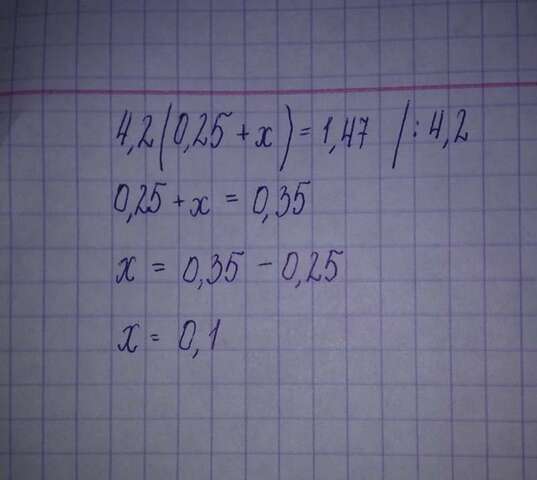 4,2(0,25+x)=1,47 /:4,2
0,25+x=0,35
x=0,35-0,25
x=0,1